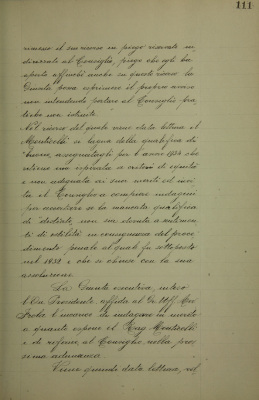 111
rimesso il suo ricorso in piego riservato in-
dirizzato al Consiglio, piego che egli ha
aperto affinchè anche su questo ricorso la
Giunta possa esprimere il proprio avviso
non intendendo portare al Consiglio pra-
tiche non istruite.
Nel ricorso del quale viene data lettura il
Monticelli si lagna della qualifica di
buono, assegnatagli per l'anno 1934 che
ritiene non ispirata a criteri di equità
e non adeguata ai suoi meriti ed invi-
ta il Consiglio a compiere indagini
per accertare se la mancata qualifica
di distinto, non sia dovuta a sentimen-
ti di ostilità in conseguenza del proce-
dimento penale al quale fu sottoposto
nel 1932 e che si chiuse con la sua
assoluzione.
La Giunta esecutiva, inteso
il Presidente affida al Gr. Uff.
l'incarico di indagare in merito
a quanto espone il Rag. Monticelli
e di riferire al Consiglio nella pros-
sima adunanza.
Viene quindi data lettura, nel